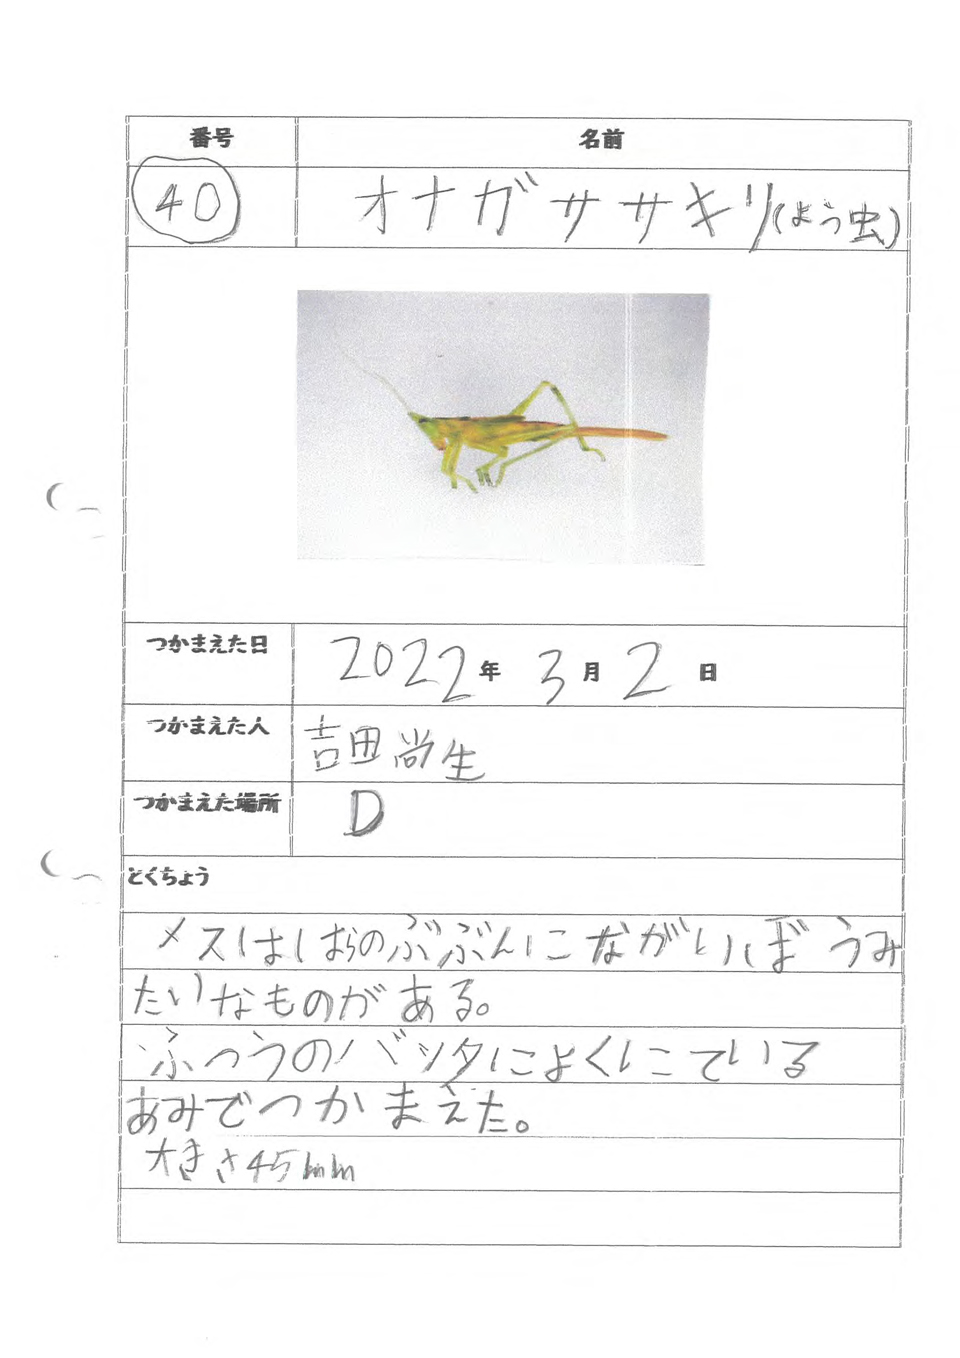 番号 名前
40 オナガササキリ(よう虫)
つかまえた日 2022年 3月 2日
つかまえた人 吉田尚生
つかまえた場所 D
とくちょう
メスはしはらのぶぶんにながいぼうみ
たいなものがある。
ふつうのバッタによくにている
あみでつかまえた。
大きさ45mm